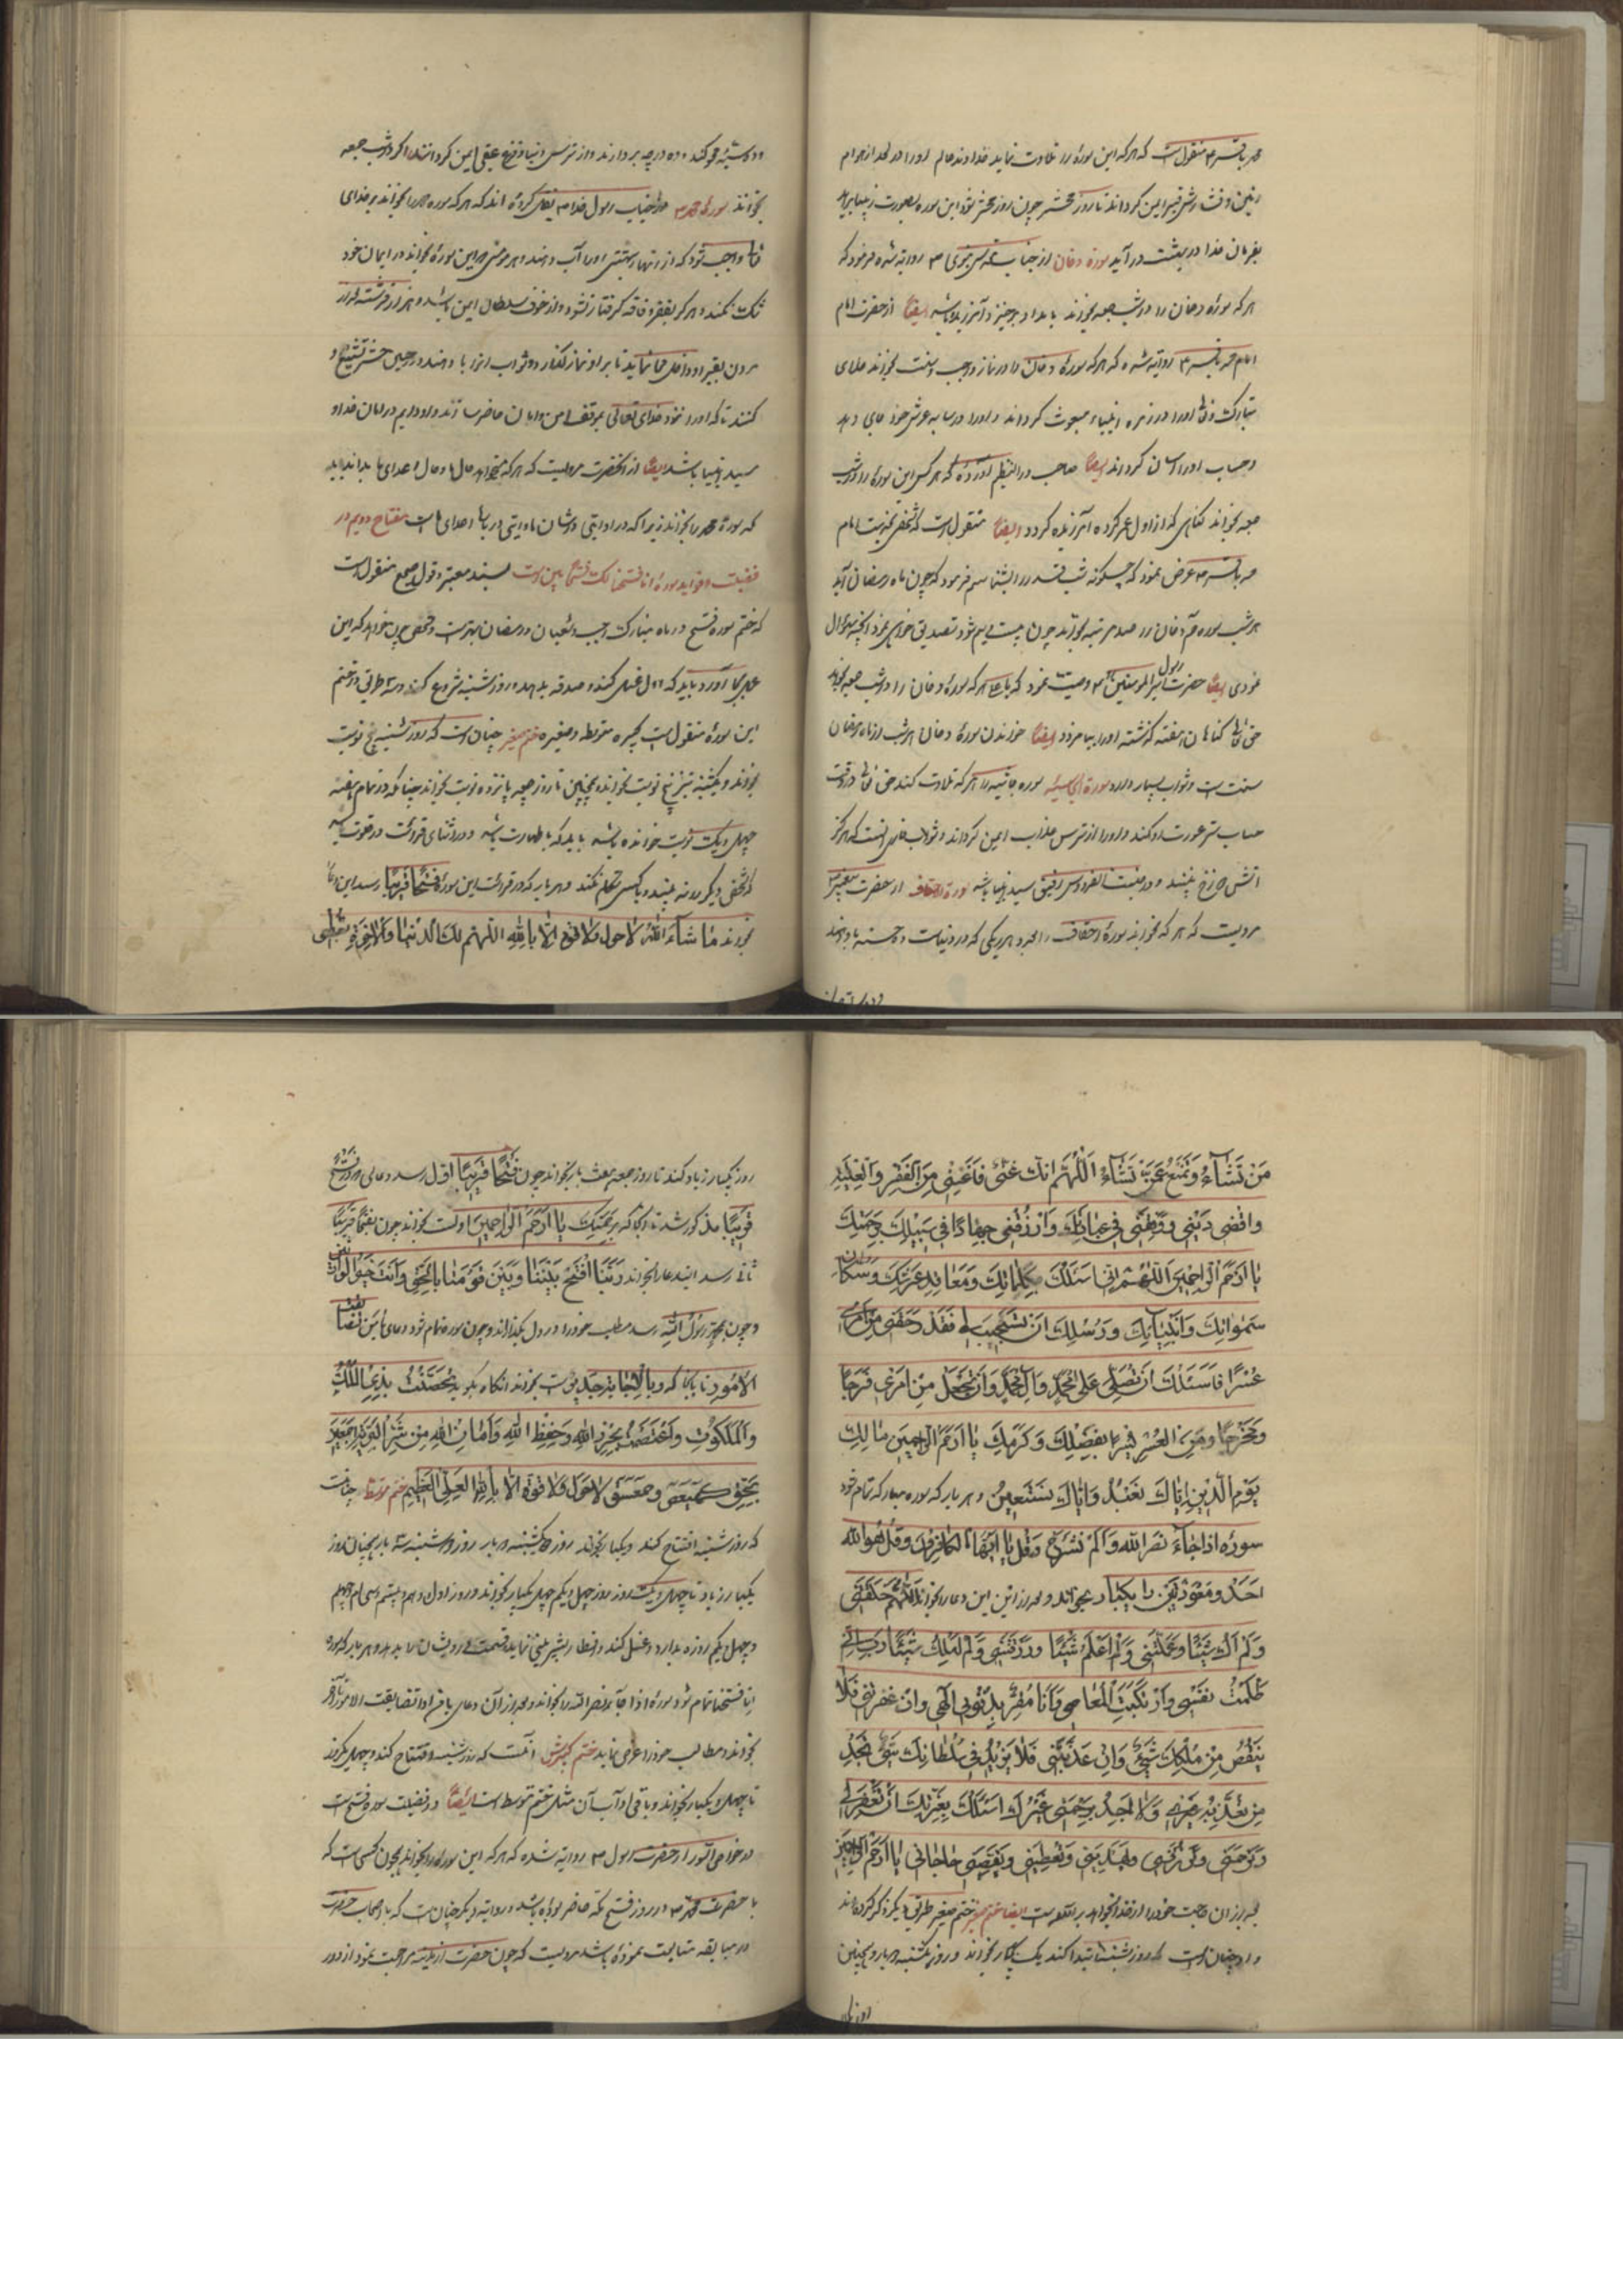 محمد باقر ع منقول است که هر که این سوره را تلاوت نماید خداوند عالم او را در لحد از هوام
زمین و فشارش قبر ایمن گرداند تا روز محشر چون روز محشر شود این سوره بصورت زیبا بیاید
بفرمان خدا در بهشت در آید سورة دخان از جناب مقدس نبوی ص روایة شده فرمود که
هر که سورهٔ دخان را در شب جمعه بخواند بامداد برخیزد آمرزیده باشد ایضًا از حضرت امام
امام محمد باقر ع روایة شده که هر که سورهٔ دخان را در نماز واجب و سنت بخواند خدای
تبارک و تعالی او را در زمره انبیاء مبعوث گرداند و او را در سایه عرش خود جای دهد
و حساب او را آسان گرداند ایضًا صاحب در النظیم آورده که هر کس این سوره را در شب
جمعه بخواند گناهی که از اول عمر کرده آمرزیده گردد ایضًا منقول است که شخصی بخدمت امام
محمد باقر ع عرض نمود که چگونه شب قدر را بشناسم فرمود که چون ماه رمضان آید
هر شب سوره حم دخان را صد مرتبه بخواند چون شب بیستم شود تصدیق خواهی نمود آنچه سؤال
نمودی ایضًا حضرت رسول امیر المومنین ع وصیت نمود که یا علی هر که سورهٔ دخان را در شب جمعه بخواند
حق تعالی گناهان هفته گذشته او را بیامرزد ایضًا خواندن سورهٔ دخان هر شب از ماه رمضان
سنت است و ثواب بسیار دارد سورة الجاثیه سوره جاثیه را هر که تلاوت کند حق تعالی در وقت
حساب ستر عورت او کند و او را از ترس عذاب ایمن گرداند و ثواب خواندن آنست که هرگز
آتش دوزخ نبیند و در جنت الفردوس رفیق سید انبیا باشد سورة احقاف از حضرت پیغمبر
مرویست که هر که بخواند سورهٔ احقاف را بعدد هر ریگی که در دنیاست ده حسنه باو دهند
و ده سیئه محو کند و ده درجه بردارند و از ترس دنیا و فزع عقبی ایمن گردانند اگر در شب جمعه
بخواند سورهٔ محمد ص از جناب رسول خدا ص نقل کرده اند که هر که سوره محمد را بخواند بر خدای
تعالی واجب شود که از انهار بهشتی او را آب دهند و هر مومنی که این سورهٔ بخواند در ایمان خود
شک نکند و هرگز بفقر و فاقه گرفتار نشود و از خوف سلطان ایمن باشد و هزار فرشته از
مردن بقبر او داخل نماید تا بر او نماز گذارد و ثواب آنرا باو دهند و در حین حشر تشییع او
کنند تا که او را نزد خدای تعالی بموقف امن و امان حاضر سازند و او دایم در امان خدا و
سید انبیا باشد ایضًا از آنحضرت مرویست که هر که میخواهد حال ما و حال اعدای ما بداند باید
که سورهٔ محمد را بخواند زیرا که در او آیتی در شان ما و آیتی در باب اعدای ماست مفتاح دویم در
فضیلت و فواید سورهٔ انا فتحنا لک فتحًا مبین است بسند معتبر و قول صحیح منقول است
که ختم سوره فتح در ماه مبارک رجب و شعبان و رمضان بهتر است و شخصی چون خواهد که این
عمل بجا آورد باید که اول غسل کند و صدقه بدهد و روز شنبه شروع کند و سه طریق در ختم
این سورهٔ منقول است کبیره متوسطه و صغیره ختم صغیر چنان است که روز شنبه پنج نوبت
بخواند و یکشنبه نیز پنج نوبت بخواند و همچنین تا روز جمعه یازده نوبت بخواند چنانکه در تمام هفته
چهل و یک نوبت خوانده باشد باید که با طهارت باشد و در اثنای قرائت در خلوت باشد
که شخص دیگر او را نه بیند و با کس تکلم نکند و هر بار که در قرائت این سورهٔ فَتْحًا قَرِیبًا رسد این دعا
بخواند مَا شَآءَ اللّٰهُ لَاحَوْلَ وَلَاقُوَّةَ اِلَّا بِاللّٰهِ اَللّٰهُمَّ لَكَ الدُّنْیَا وَالْاٰخِرَةِ تُعْطِی
مَنْ تَشَآءُ وَتَمْنَعُ عَمَّنْ تَشَآءُ اَللّٰهُمَّ اِنَّكَ غَنِیٌّ فَاَغْنِنِی مِنَ الْفَقْرِ وَالْغِلْبَةِ
وَاقْضِ دَیْنِی وَوَفِّقْنِی فِی عِبَادَتِكَ وَارْزُقْنِی جِهَادًا فِی سَبِیلِكَ بِرَحْمَتِكَ
یَا اَرْحَمَ الرَّاحِمِینَ اَللّٰهُمَّ اِنِّی اَسْئَلُكَ بِکَلِمَاتِكَ وَمَعَاقِدِ عَرْشِكَ وَسُکَّانِ
سَمٰوٰاتِكَ وَاَنْبِیَائِكَ وَرُسُلِكَ اَنْ تَسْتَجِیبَ لِی فَقَدْ رَهَقَنِی مِنْ اَمْرِی
عُسْرًا فَاَسْئَلُكَ اَنْ تُصَلِّیَ عَلٰی مُحَمَّدٍ وَاٰلِ مُحَمَّدٍ وَاَنْ تَجْعَلَ مِنْ اَمْرِی فَرَجًا
وَمَخْرَجًا وَمِنَ الْعُسْرِ یُسْرًا بِفَضْلِكَ وَکَرَمِكَ یَا اَرْحَمَ الرَّاحِمِینَ مَالِكِ
یَوْمِ الدِّینِ اِیَّاكَ نَعْبُدُ وَاِیَّاكَ نَسْتَعِینُ و هر بار که سوره مبارکه تمام شود
سورۀ اِذَا جَآءَ نَصْرُ اللّٰهِ وَاَلَمْ نَشْرَحْ وَقُلْ یَا اَیُّهَا الْکَافِرُونَ وَقُلْ هُوَ اللّٰهُ
اَحَدٌ وَمُعَوَّذَتَیْنِ را یکبار بخواند و بعد از این این دعا را بخواند اَللّٰهُمَّ خَلَقْتَنِی
وَلَمْ اَكُ شَیْئًا وَعَلَّمْتَنِی وَلَمْ اَعْلَمْ شَیْئًا وَرَزَقْتَنِی وَلَمْ اَمْلِكْ شَیْئًا رَبِّ اِنِّی
ظَلَمْتُ نَفْسِی وَارْتَکَبْتُ الْمَعَاصِی وَاَنَا مُقِرٌّ بِذُنُوبِی اِلٰهِی وَاِنْ غَفَرْتَنِی فَلَا
یَنْقُصُ مِنْ مُلْکِكَ شَیْءٌ وَاِنْ عَذَّبْتَنِی فَلَا یَزِیدُ فِی سُلْطَانِكَ شَیْءٌ تَجِدُ
مَنْ تُعَذِّبُهُ غَیْرِی وَلَا اَجِدُ مَنْ یَرْحَمُنِی غَیْرَكَ اَسْئَلُكَ بِعِزَّتِكَ اَنْ تَغْفِرَ لِی
وَتَرْحَمَنِی وَتَرْزُقَنِی وَتَهْدِیَنِی وَتُعْطِیَنِی وَتَقْضِیَ حَاجَاتِی یَا اَرْحَمَ الرَّاحِمِینَ
بعد از آن حاجت خود را از خدا بخواهد بر آنقدر است ایضا ختم صغیر ختم صغیر طریق دیگر ذکر کرده اند
و او چنان است که روز شنبه ابتدا کند یک بار بخواند و روز یکشنبه دو بار و همچنین
روز یکبار زیاد کند تا روز جمعه هفت بار بخواند چون فَتْحًا قَرِیبًا اول رسد دعائی که در فَتْحًا
قَرِیبًا مذکور شد تا آنجا که بِرَحْمَتِكَ یَا اَرْحَمَ الرَّاحِمِینَ اوست بخواند چون بفَتْحًا قَرِیبًا
ثانی رسد این دعا بخواند رَبَّنَا افْتَحْ بَیْنَنَا وَبَیْنَ قَوْمِنَا بِالْحَقِّ وَاَنْتَ خَیْرُ الْفَاتِحِینَ
و چون بمحمد رسول الله رسد مطلب خود را در دل بگذراند و چون سوره تمام شود دعای یَا مَنْ اِذَا تَضَایَقَتِ
الْاُمُورِ تا بآنجا که وَبِالْاِجَابَةِ جَدِیرٌ است بخواند آنگاه بگوید تَحَصَّنْتُ بِذِی الْمُلْكِ
وَالْمَلَکُوتِ وَاعْتَصَمْتُ بِحِرْزِ اللّٰهِ وَحِفْظِ اللّٰهِ وَاَمَانِ اللّٰهِ مِنْ شَرِّ الْبَرِیَّةِ اَجْمَعِینَ
بِحَقِّ کٓهٰیٰعٓصٓ وحٰمٓعٓسٓقٓ لَاحَوْلَ وَلَاقُوَّةَ اِلَّا بِاللّٰهِ الْعَلِیِّ الْعَظِیمِ ختم متوسط چنانست
که روز شنبه افتتاح کند و یکبار بخواند روز یکشنبه دو بار روز دوشنبه سه بار همچنان هر روز
یکبار زیاد تا چهل و یک روز روز چهل و یکم چهل و یکبار بخواند و روز اول و دهم و بیستم و سی ام و چهلم
و چهل و یکم روزه بدارد و غسل کند و افطار بشیرینی نماید و قسمت بدرویشان را بدهد و هر بار که سوره
انا فتحنا تمام شود سورهٔ اذا جآء نصر الله را بخواند و بعد از آن دعای یا من اذا تضایقت الامور تا آخر
بخواند و مطالب خود را عرض نماید ختم کبیرش آنست که روز شنبه افتتاح کند و چهل و یکروز
تا چهل و یکبار بخواند و باقی آداب آن مثل ختم متوسط است ایضًا در فضیلت سوره فتح است
در خواص السور از حضرت رسول ص روایة شده که هر که این سوره را بخواند همچون کسی است که
با حضرت محمد ص در روز فتح مکه حاضر بوده باشد و روایة دیگر چنان است که با اصحاب حضرت
در مبایعه متابعت نموده باشد مرویست که چون حضرت از مکه مراجعت نمود از دور